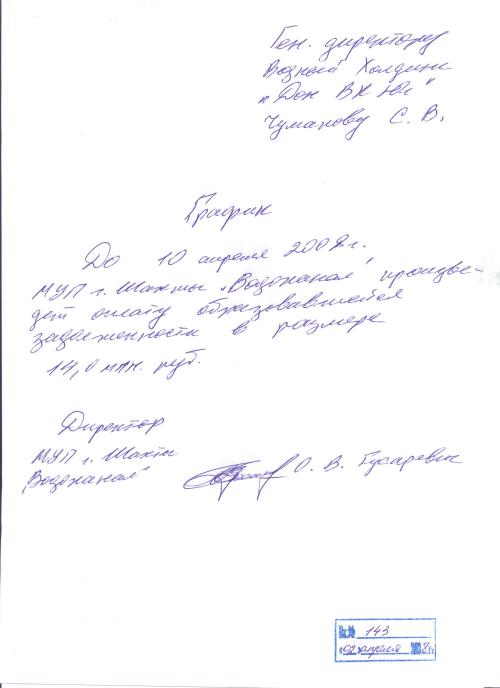 Ген. директору
Водный Холдинг
"Дон ВК Юг"
Чуманову С. В.
График
До 10 апреля 2008 г.
МУП г. Шахты "Водоканал" произве-
дет оплату образовавшейся
задолженности в размере
14,0 млн. руб.
Директор
МУП г. Шахты
"Водоканал" О. В. Гусаревич
№ 143
"02" апреля 2008 г.